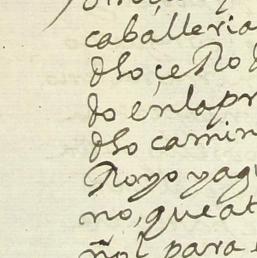 caballeria
dho çerro
do enlapr
dho camin
Royo yag
no, que at
ñol para